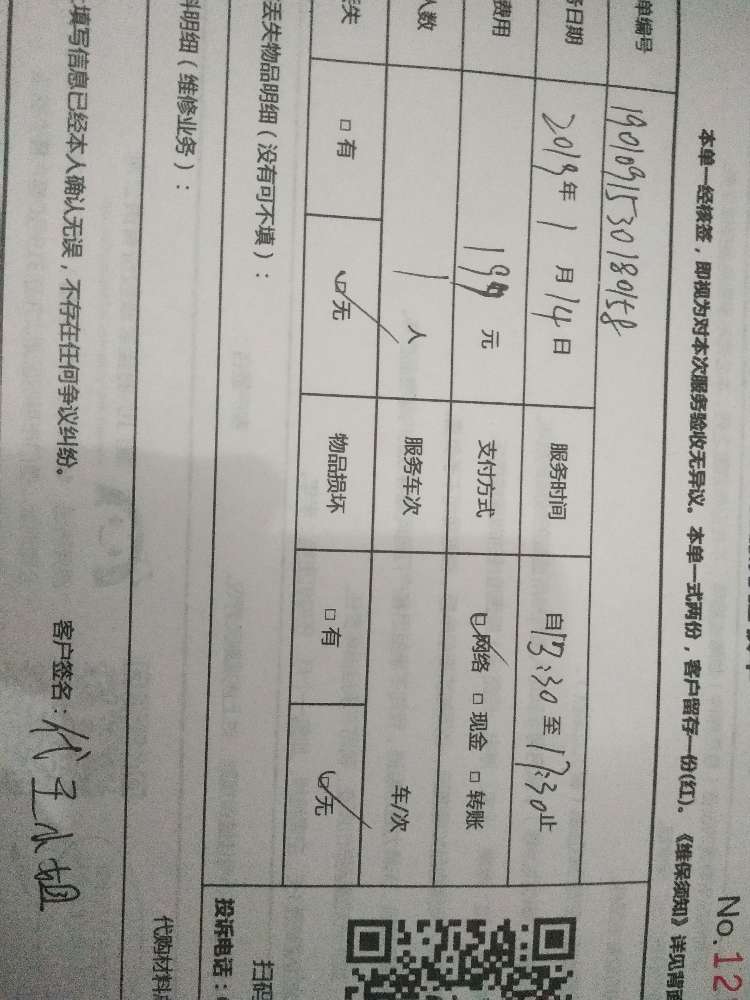 No.12
本单一经核签，即视为对本次服务验收无异议。本单一式两份，客户留存一份(红)。《维保须知》详见背面
单编号 1901091530180158
日期 2019年1月14日 服务时间 自13:30至17:30止
费用 199元 支付方式 □网络 □现金 □转账
人数 1人 服务车次 车/次
丢失 □有 □无 物品损坏 □有 □无
丢失物品明细（没有可不填）：
扫码
投诉电话：
料明细（维修业务）：
代购材料
填写信息已经本人确认无误，不存在任何争议纠纷。
客户签名：